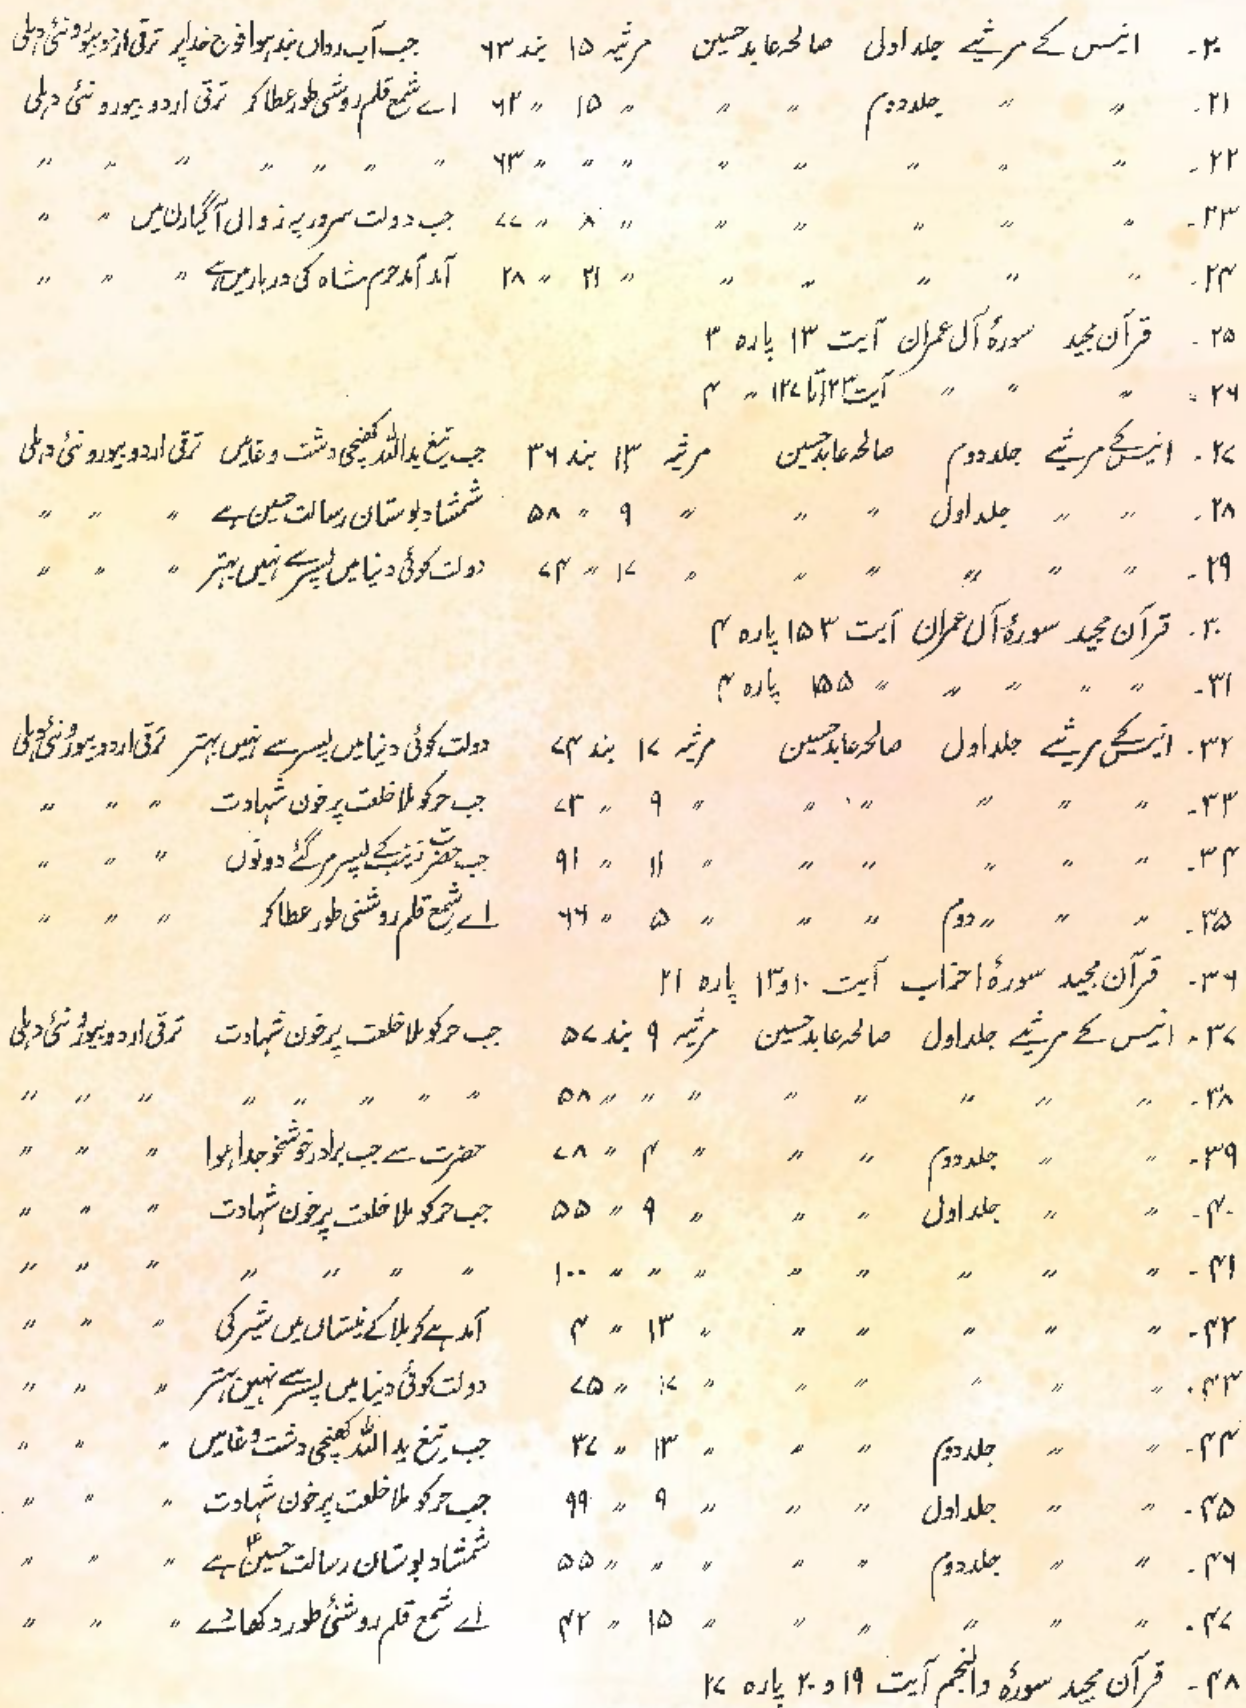 ۲۰۔ انیس کے مرثیے جلد اول صالحہ عابد حسین مرثیہ ۱۵ بند ۶۳ جب آب رواں بند ہوا فوج خدا پر ترقی اردو بیورو نئی دہلی
۲۱۔ 〃 〃 جلد دوم 〃 〃 〃 ۱۵ 〃 ۶۲ اے شمع قلم روشنی طور عطا کر ترقی اردو بیورو نئی دہلی
۲۲۔ 〃 〃 〃 〃 〃 〃 〃 〃 ۶۳ 〃 〃 〃 〃 〃 〃 〃 〃
۲۳۔ 〃 〃 〃 〃 〃 〃 ۸ 〃 ۷۷ جب دولت سرور پہ زوال آ گیا رن میں 〃 〃
۲۴۔ 〃 〃 〃 〃 〃 〃 ۲۱ 〃 ۲۸ آمد آمد حرم شاہ کی دربار میں ہے 〃 〃 〃
۲۵۔ قرآن مجید سورۂ آل عمران آیت ۱۳ پارہ ۳
۲۶۔ 〃 〃 〃 آیت ۱۲۳ تا ۱۲۷ 〃 ۴
۲۷۔ انیس کے مرثیے جلد دوم صالحہ عابد حسین مرثیہ ۱۳ بند ۳۶ جب تیغ یداللہ کھنچی دشت وغا میں ترقی اردو بیورو نئی دہلی
۲۸۔ 〃 〃 جلد اول 〃 〃 〃 ۹ 〃 ۵۸ شمشاد بوستان رسالت حسین ہے 〃 〃 〃
۲۹۔ 〃 〃 〃 〃 〃 〃 ۱۷ 〃 ۷۴ دولت کوئی دنیا میں پسر سے نہیں بہتر 〃 〃 〃
۳۰۔ قرآن مجید سورۂ آل عمران آیت ۱۵۳ پارہ ۴
۳۱۔ 〃 〃 〃 〃 〃 ۱۵۵ پارہ ۴
۳۲۔ انیس کے مرثیے جلد اول صالحہ عابد حسین مرثیہ ۱۷ بند ۷۴ دولت کوئی دنیا میں پسر سے نہیں بہتر ترقی اردو بیورو نئی دہلی
۳۳۔ 〃 〃 〃 〃 〃 〃 ۹ 〃 ۷۳ جب حر کو ملا خلعت پر خون شہادت 〃 〃 〃
۳۴۔ 〃 〃 〃 〃 〃 〃 ۱۱ 〃 ۹۱ جب حضرت زینب کے پسر مر گئے دونوں 〃 〃 〃
۳۵۔ 〃 〃 〃 دوم 〃 〃 〃 ۵ 〃 ۶۶ اے شمع قلم روشنی طور عطا کر 〃 〃 〃
۳۶۔ قرآن مجید سورۂ احزاب آیت ۱۰ و ۱۳ پارہ ۲۱
۳۷۔ انیس کے مرثیے جلد اول صالحہ عابد حسین مرثیہ ۹ بند ۵۷ جب حر کو ملا خلعت پر خون شہادت ترقی اردو بیورو نئی دہلی
۳۸۔ 〃 〃 〃 〃 〃 〃 〃 〃 ۵۸ 〃 〃 〃 〃 〃 〃 〃 〃
۳۹۔ 〃 〃 جلد دوم 〃 〃 〃 ۴ 〃 ۷۸ حضرت سے جب برادر خوشخو جدا ہوا 〃 〃 〃
۴۰۔ 〃 〃 جلد اول 〃 〃 〃 ۹ 〃 ۵۵ جب حر کو ملا خلعت پر خون شہادت 〃 〃 〃
۴۱۔ 〃 〃 〃 〃 〃 〃 〃 〃 ۱۰۰ 〃 〃 〃 〃 〃 〃 〃
۴۲۔ 〃 〃 〃 〃 〃 〃 ۱۳ 〃 ۴ آمد ہے کربلا کے نیستاں میں شیر کی 〃 〃 〃
۴۳۔ 〃 〃 〃 〃 〃 〃 ۱۷ 〃 ۷۵ دولت کوئی دنیا میں پسر سے نہیں بہتر 〃 〃 〃
۴۴۔ 〃 〃 جلد دوم 〃 〃 〃 ۱۳ 〃 ۳۷ جب تیغ ید اللہ کھنچی دشت وغا میں 〃 〃 〃
۴۵۔ 〃 〃 جلد اول 〃 〃 〃 ۹ 〃 ۹۹ جب حر کو ملا خلعت پر خون شہادت 〃 〃 〃
۴۶۔ 〃 〃 جلد دوم 〃 〃 〃 〃 〃 ۵۵ شمشاد بوستان رسالت حسینؑ ہے 〃 〃 〃
۴۷۔ 〃 〃 〃 〃 〃 〃 ۱۵ 〃 ۴۲ اے شمع قلم روشنئ طور دکھا دے 〃 〃 〃
۴۸۔ قرآن مجید سورۂ والنجم آیت ۱۹ و ۲۰ پارہ ۲۷